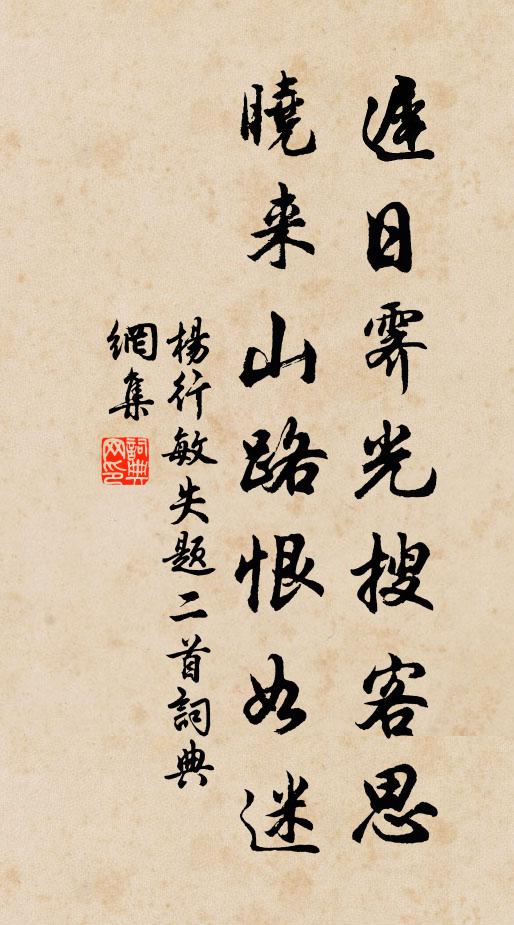 遲日霽光搜客思
曉来山路恨如迷
楊行敏失題二首詞典
網集
詞典
网印